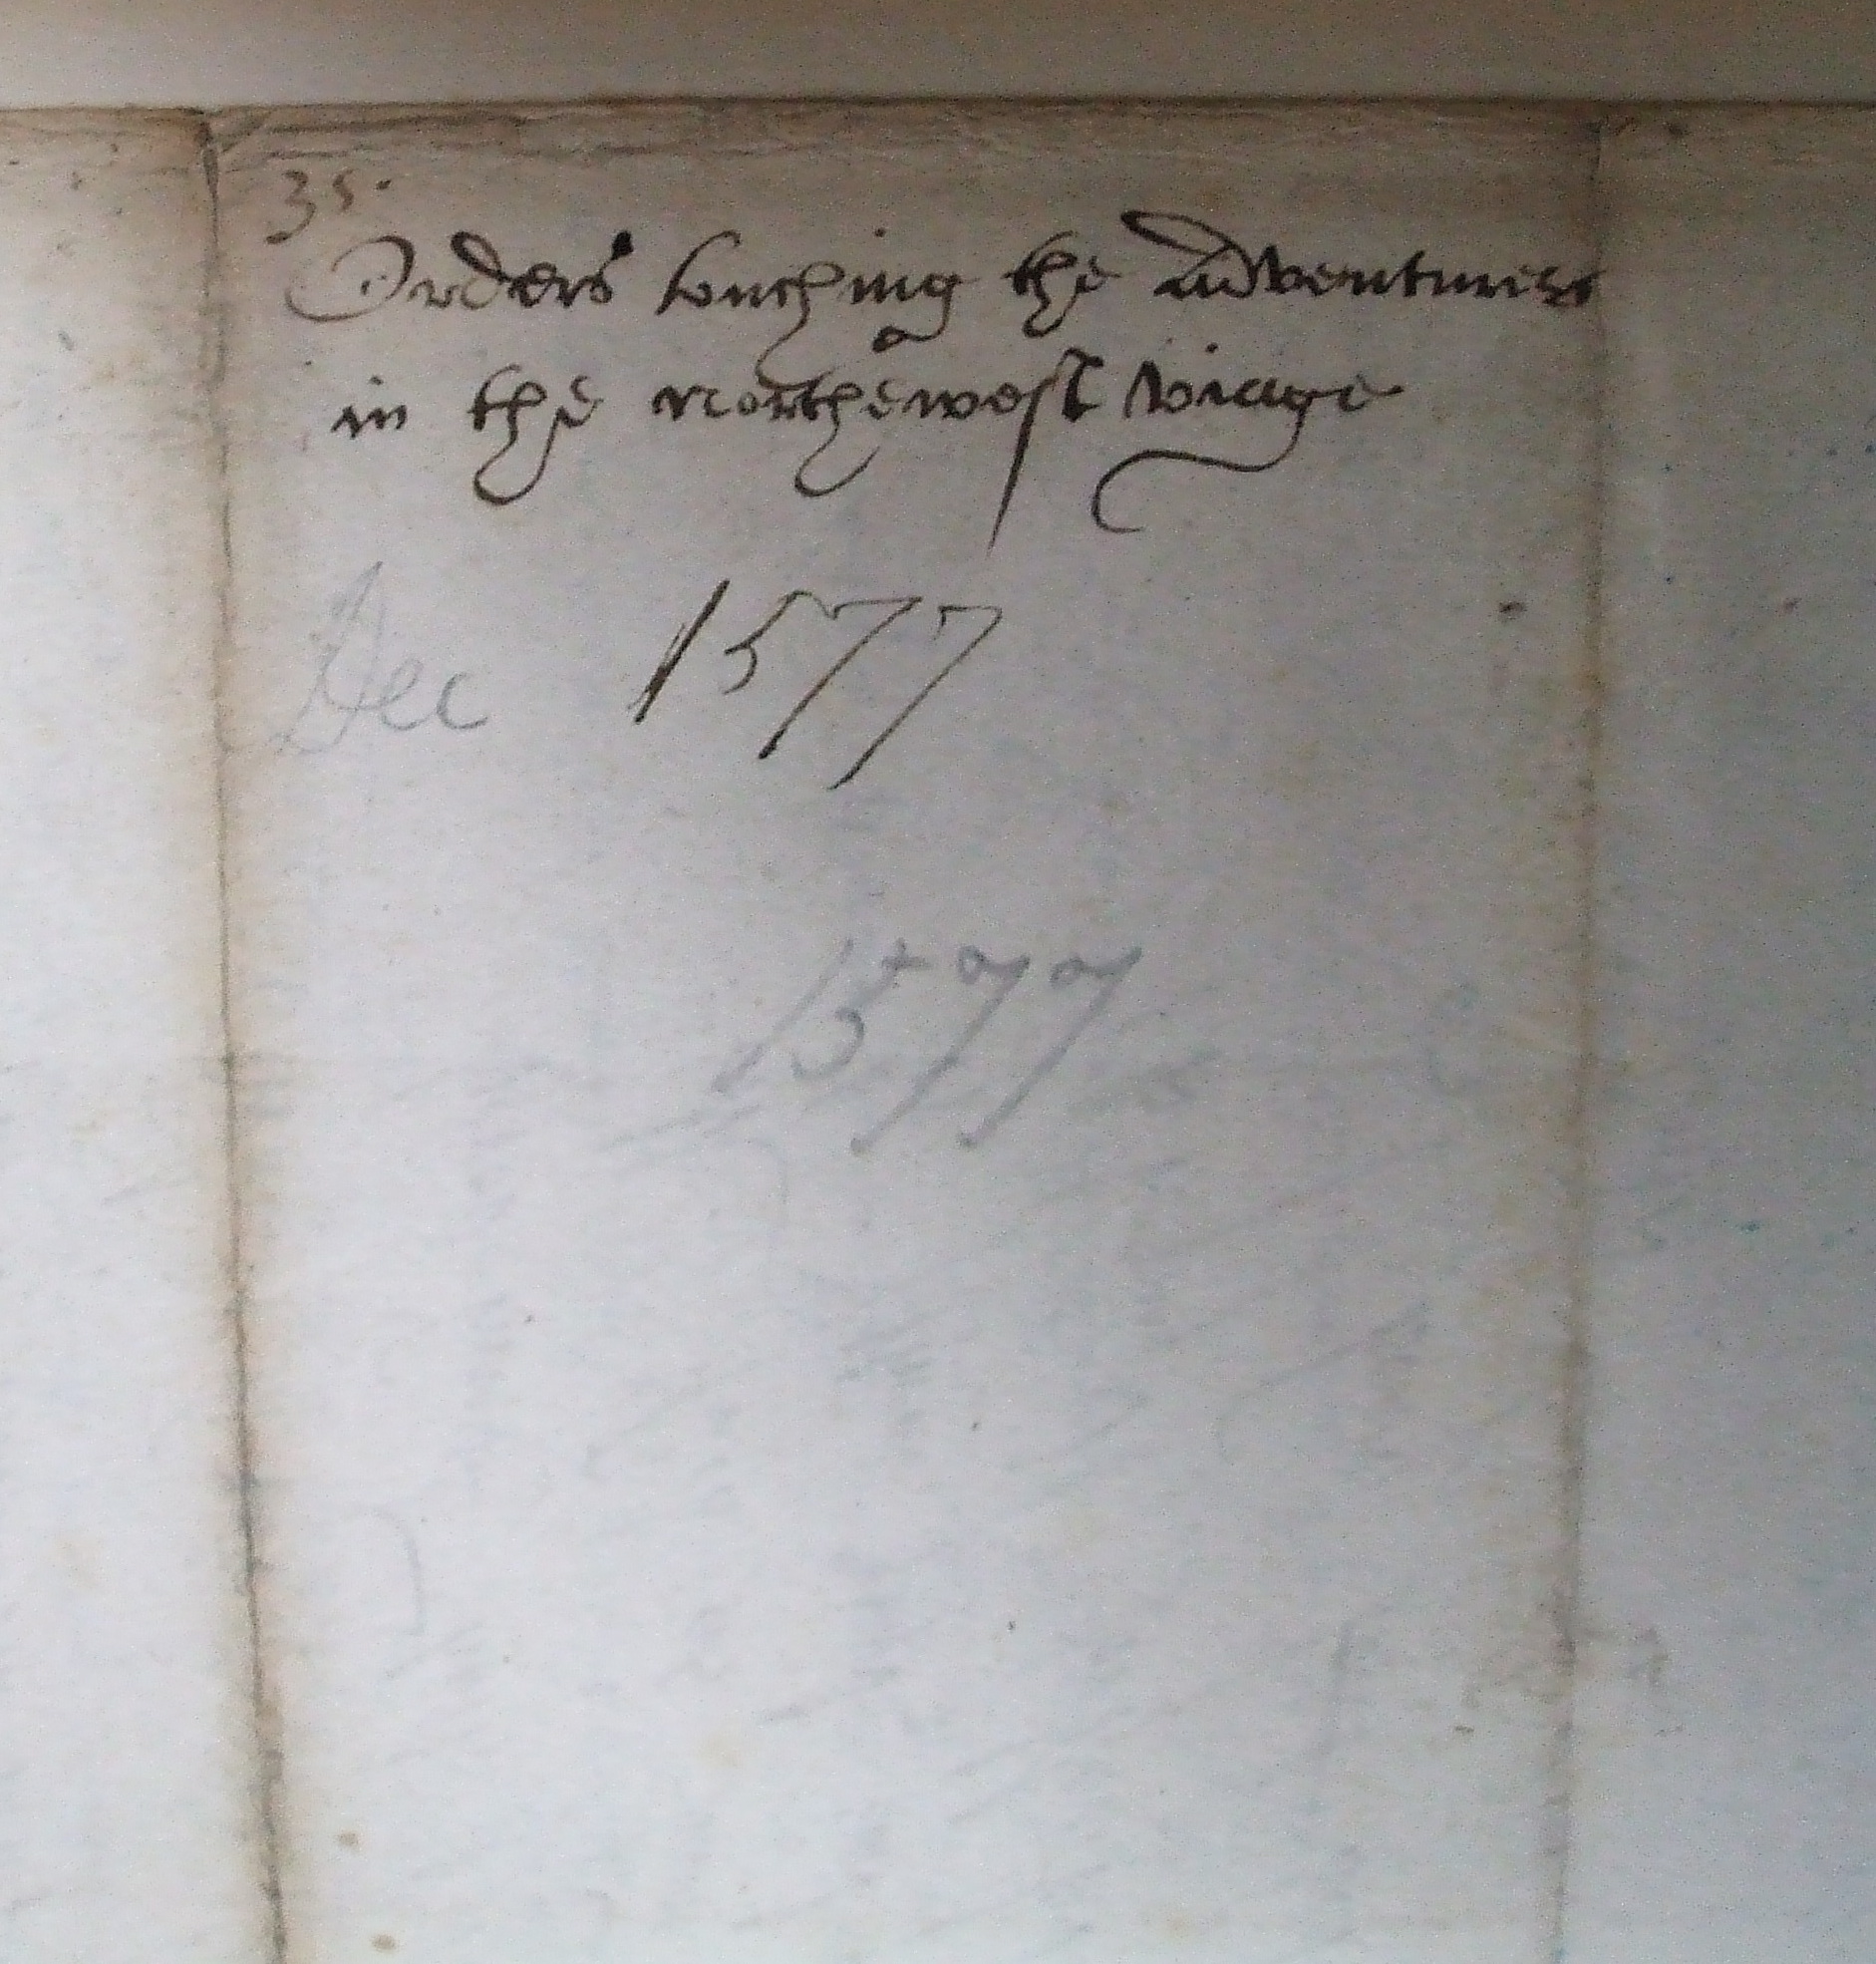 35.
Orders touching the adventurers
in the northewest viage
Dec 1577
1577